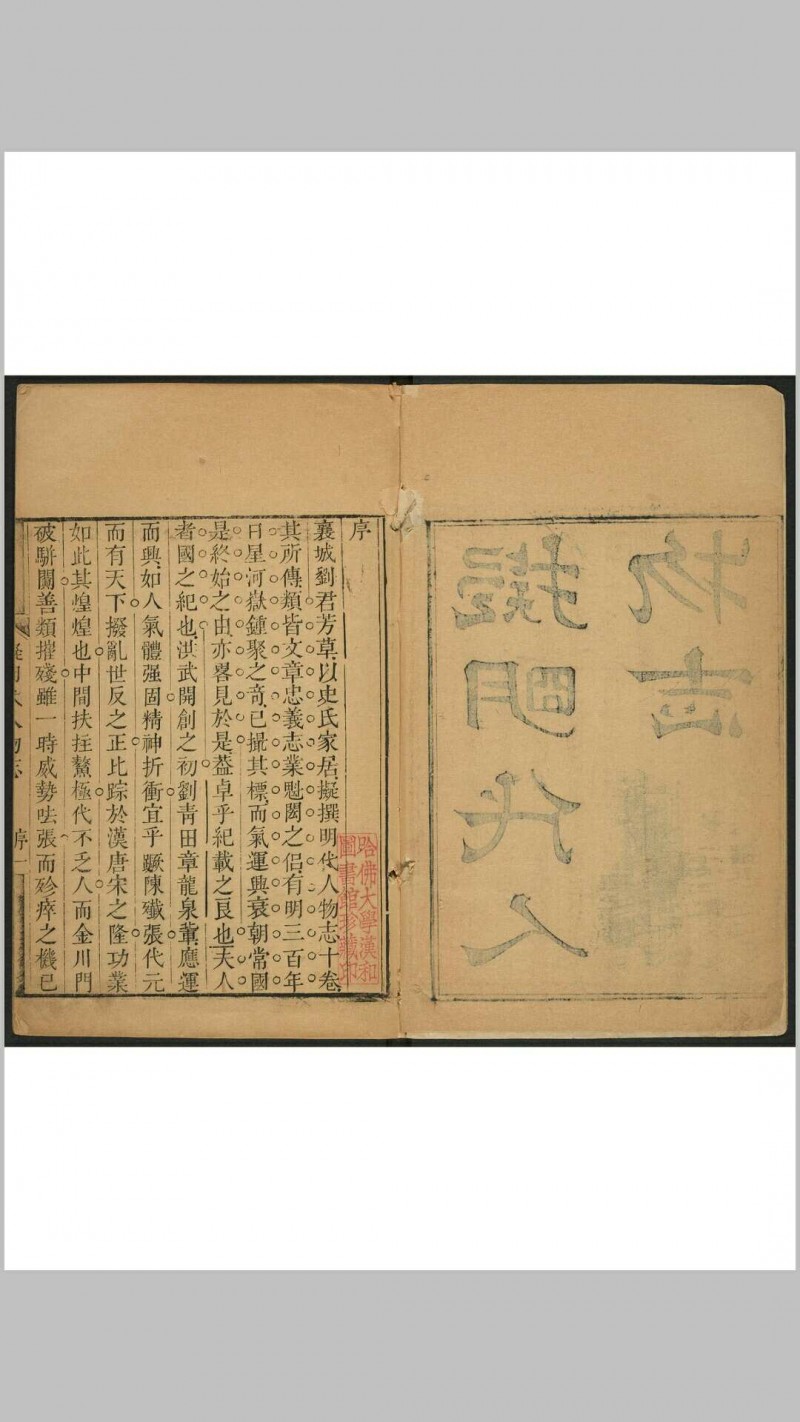 擬明代人
物志
序
襄城劉君芳草以史氏家居擬撰明代人物志十卷
其所傳類皆文章忠義志業魁閎之侶有明三百年
日星河嶽鍾聚之奇已撮其標而氣運興衰朝常國
是終始之由亦畧見於是葢卓乎紀載之良也夫人
者國之紀也洪武開創之初劉青田章龍泉軰應運
而興如人氣體强固精神折衝宜乎蹶陳殱張代元
而有天下撥亂世反之正比踪於漢唐宋之隆功業
如此其煌煌也中間扶拄鰲極代不乏人而金川門
破駢闐善類摧殘雖一時威勢呿張而殄瘁之機已
擬明代人物志 序 一
哈佛大學漢和
圖書館珍藏印